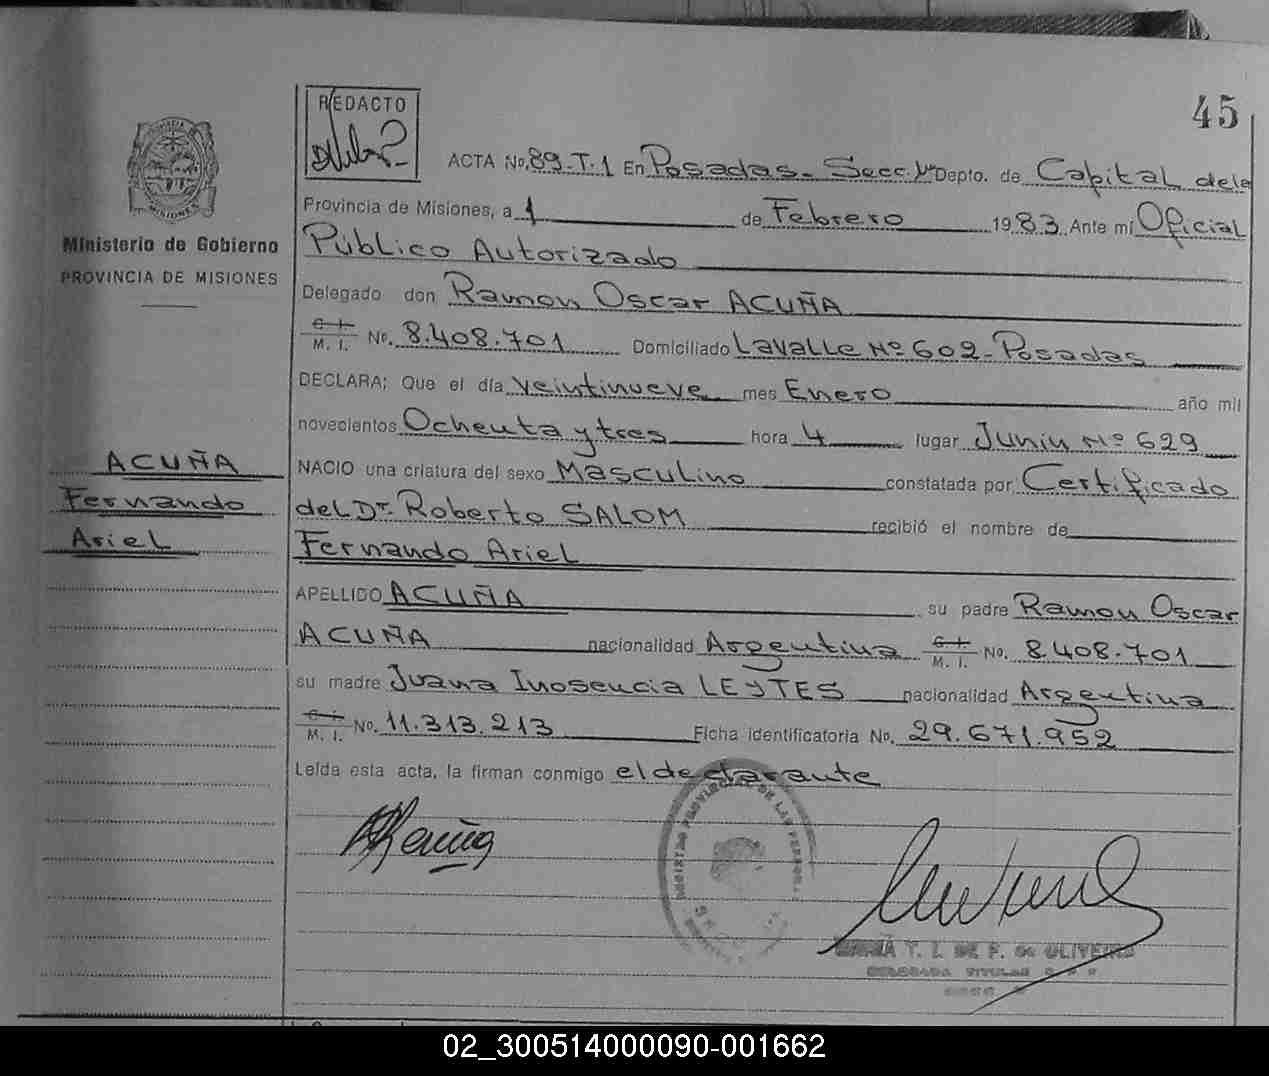 45
REDACTO
ACTA No. 89-T-1 En Posadas - Secc. 1ª Depto. de Capital de la
Provincia de Misiones, a 1 de Febrero 1983 Ante mí Oficial
Público Autorizado
Delegado don Ramon Oscar ACUÑA
C. I.
M. I. No. 8.408.701 Domiciliado Lavalle Nº 602-Posadas
DECLARA; Que el día veintinueve mes Enero año mil
novecientos Ochenta y tres hora 4 lugar Junin Nº 629
NACIO una criatura del sexo Masculino constatada por: Certificado
del Dr. Roberto SALOM recibió el nombre de
Fernando Ariel
APELLIDO ACUÑA su padre Ramon Oscar
ACUÑA nacionalidad Argentina C. I.
M. I. No. 8.408.701
su madre Juana Inosencia LEYTES nacionalidad Argentina
C. I.
M. I. No. 11.313.213 Ficha identificatoria No. 29.671.952
Leída esta acta, la firman conmigo el declarante
PROVINCIA DE
MISIONES
Ministerio de Gobierno
PROVINCIA DE MISIONES
ACUÑA
Fernando
Ariel
REGISTRO PROVINCIAL DE LAS PERSONAS
MARIA T. I. DE F. de OLIVEIRA
DELEGADA TITULAR
02_300514000090-001662